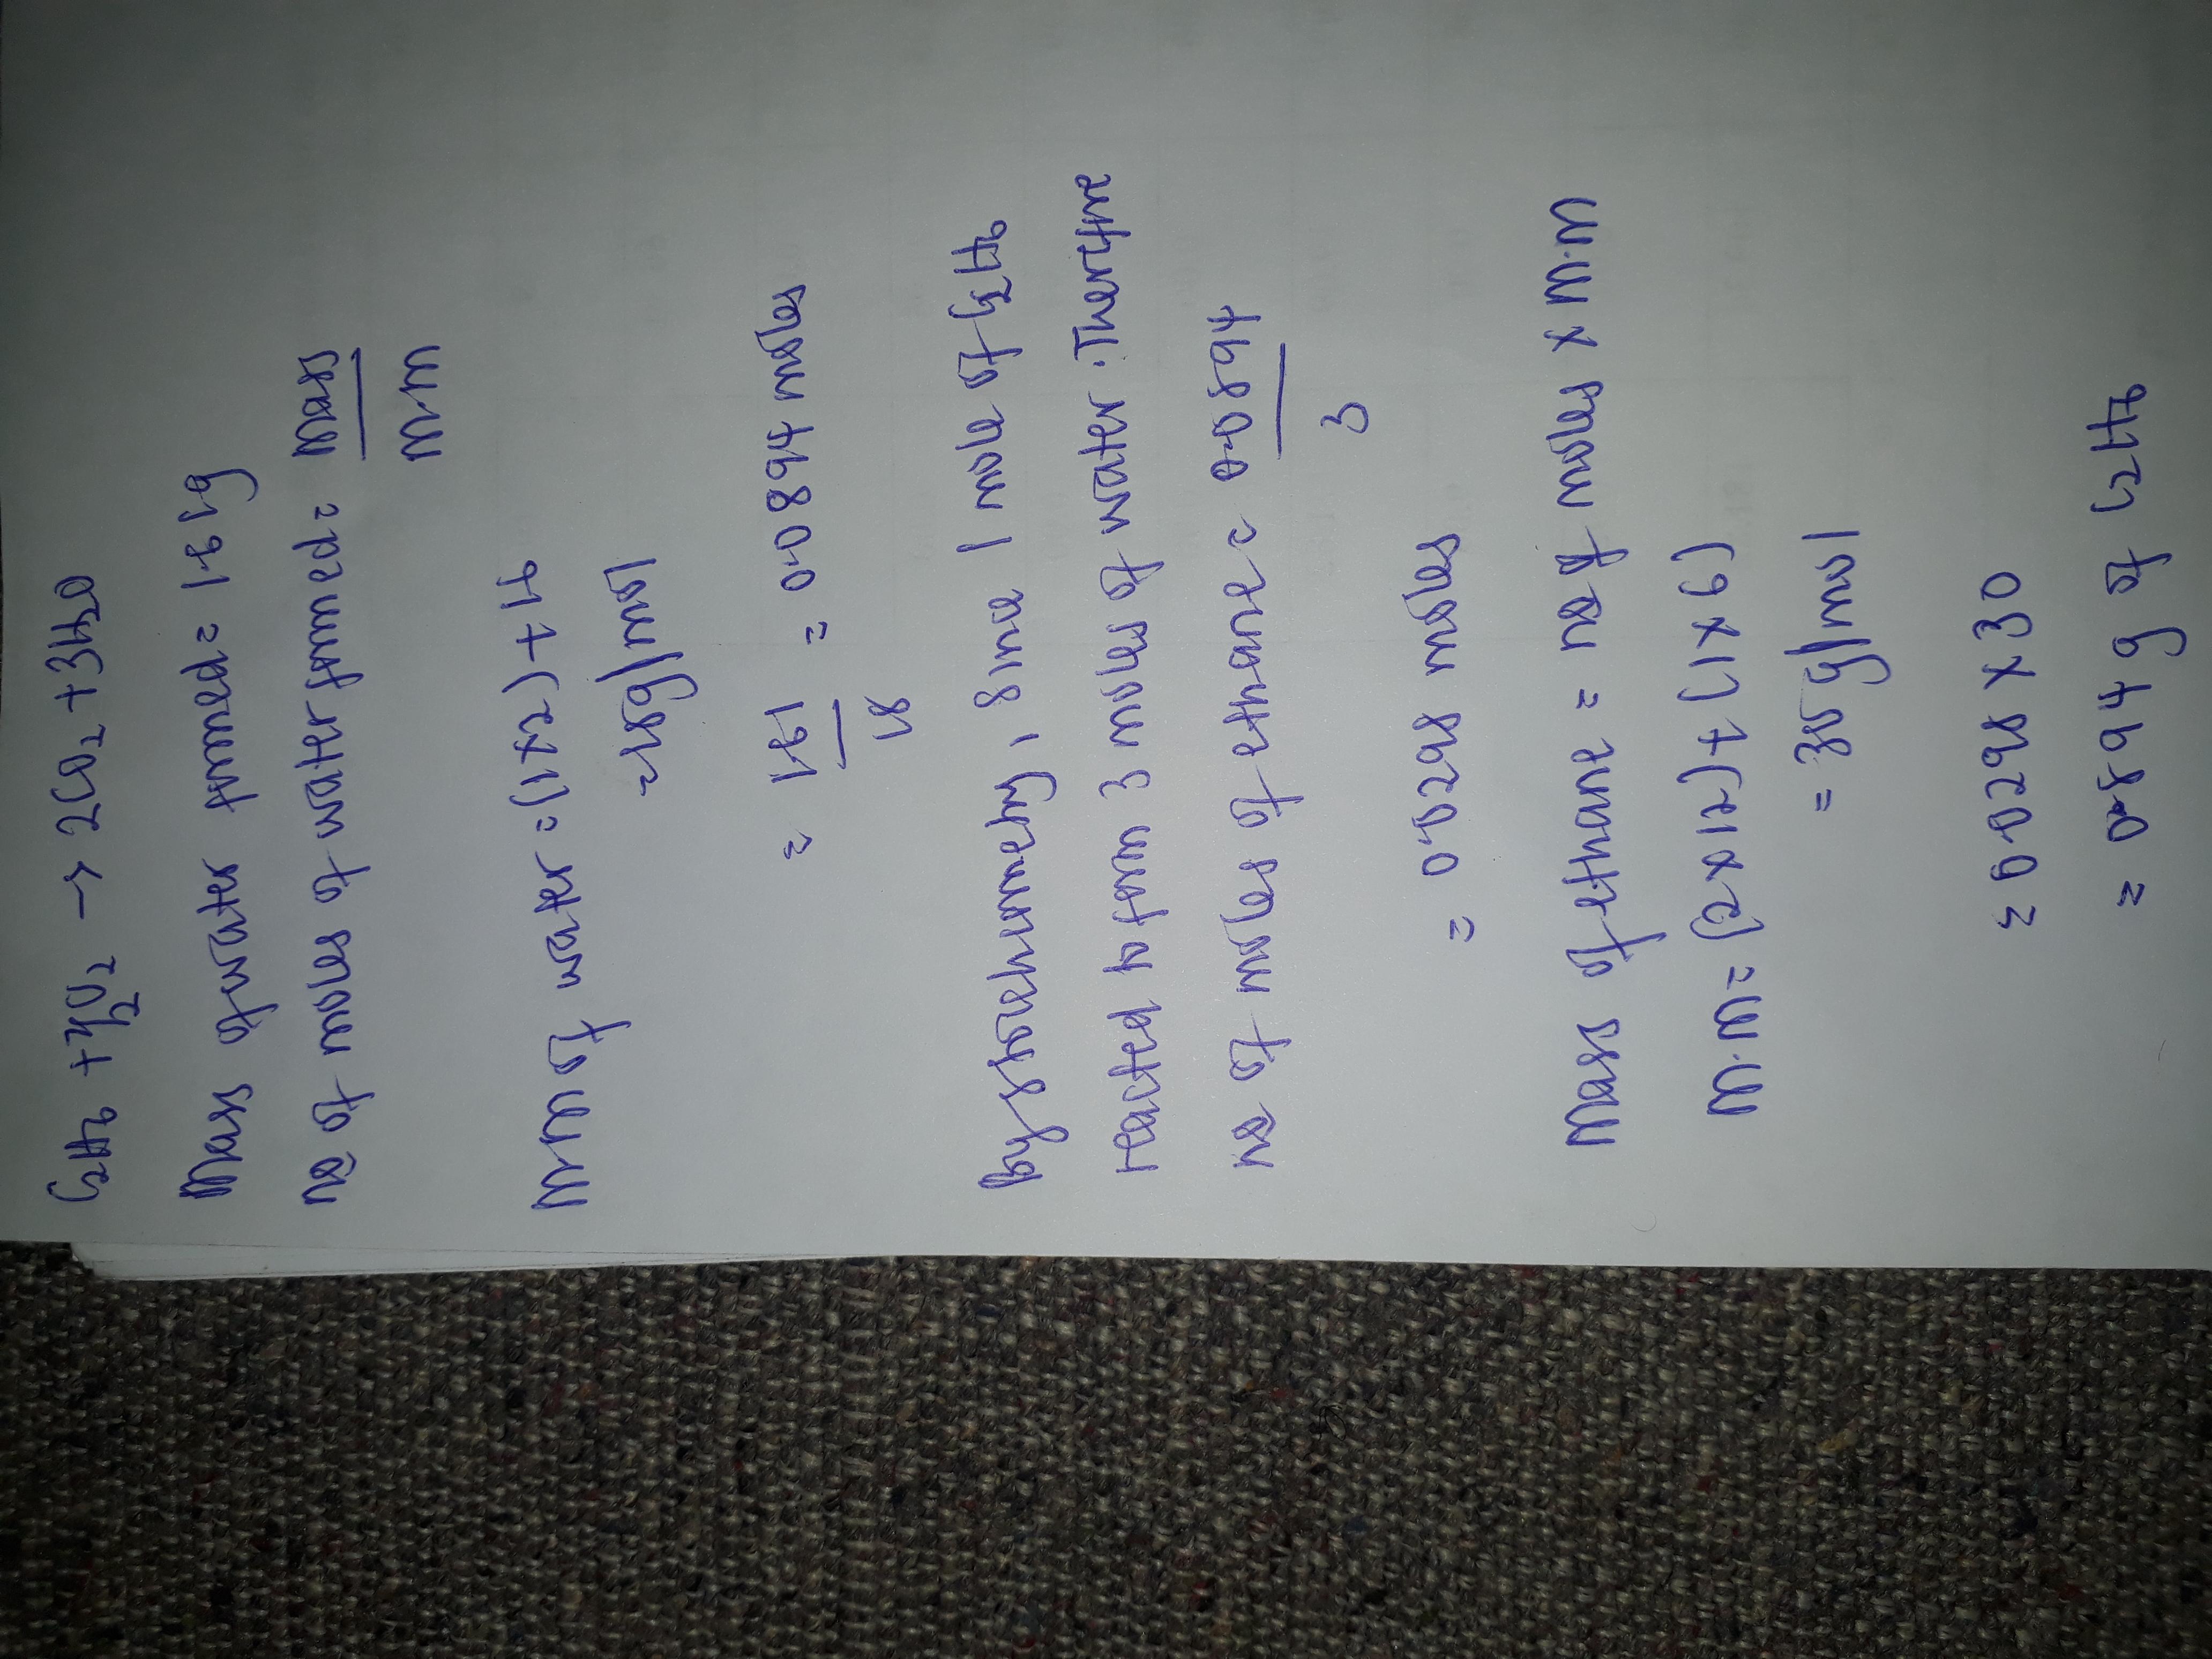 C2H6 + 7/2O2 → 2CO2 + 3H2O
Mass of water formed = 1.61g
no of moles of water formed = mass
m.m
m.m of water = (1x2) + 16
= 18g/mol
= 1.61 = 0.0894 moles
18
By stoichiometry, since 1 mole of C2H6
reacted to form 3 moles of water. Therefore
no of moles of ethane = 0.0894
3
= 0.0298 moles
Mass of ethane = no of moles x m.m
m.m = (2x12) + (1x6)
= 30g/mol
= 0.0298 x 30
= 0.894g of C2H6